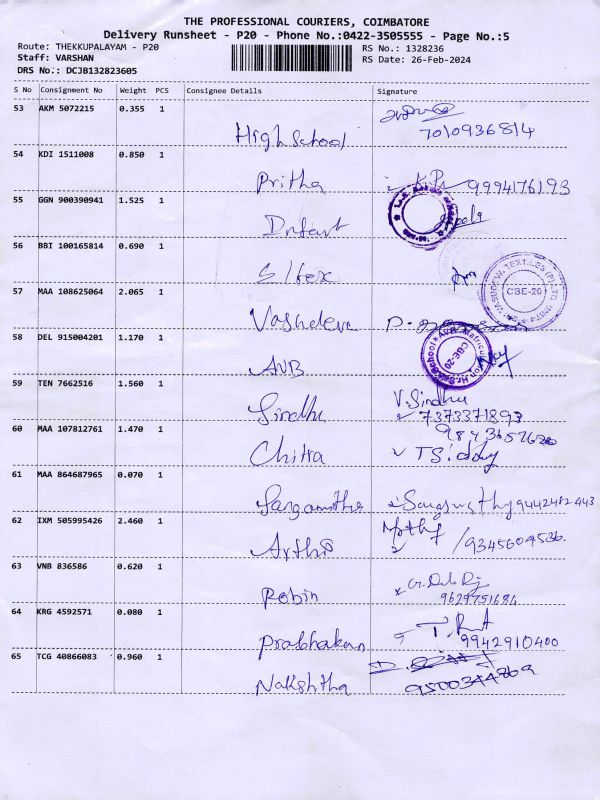 THE PROFESSIONAL COURIERS, COIMBATORE
Delivery Runsheet - P20 - Phone No.:0422-3505555 - Page No.:5
Route: THEKKUPALAYAM - P20 RS No.: 1328236
Staff: VARSHAN RS Date: 26-Feb-2024
DRS No.: DCJB132823605
S No Consignment No Weight PCS Consignee Details Signature
53 AKM 5072215 0.355 1
High school 7010936814
54 KDI 1511008 0.850 1
Pritha 9994176193
55 GGN 900390941 1.525 1
Infant
56 BBI 100165814 0.690 1
57 MAA 108625064 2.065 1
VASUDEVA TEXTILES CBE-20
Vasudeva
58 DEL 915004201 1.170 1
AVB CBE-20
59 TEN 7662516 1.560 1
Sindhu V. Sindhu
7373371893
60 MAA 107812761 1.470 1
Chitra
61 MAA 864687965 0.070 1
Sangamithe 9442482443
62 IXM 505995426 2.460 1
Arthi 9345604536
63 VNB 836586 0.620 1
Robin 9629751684
64 KRG 4592571 0.080 1
Prabhakaran 9942910400
65 TCG 40866083 0.960 1
Nakshtha 9500344869